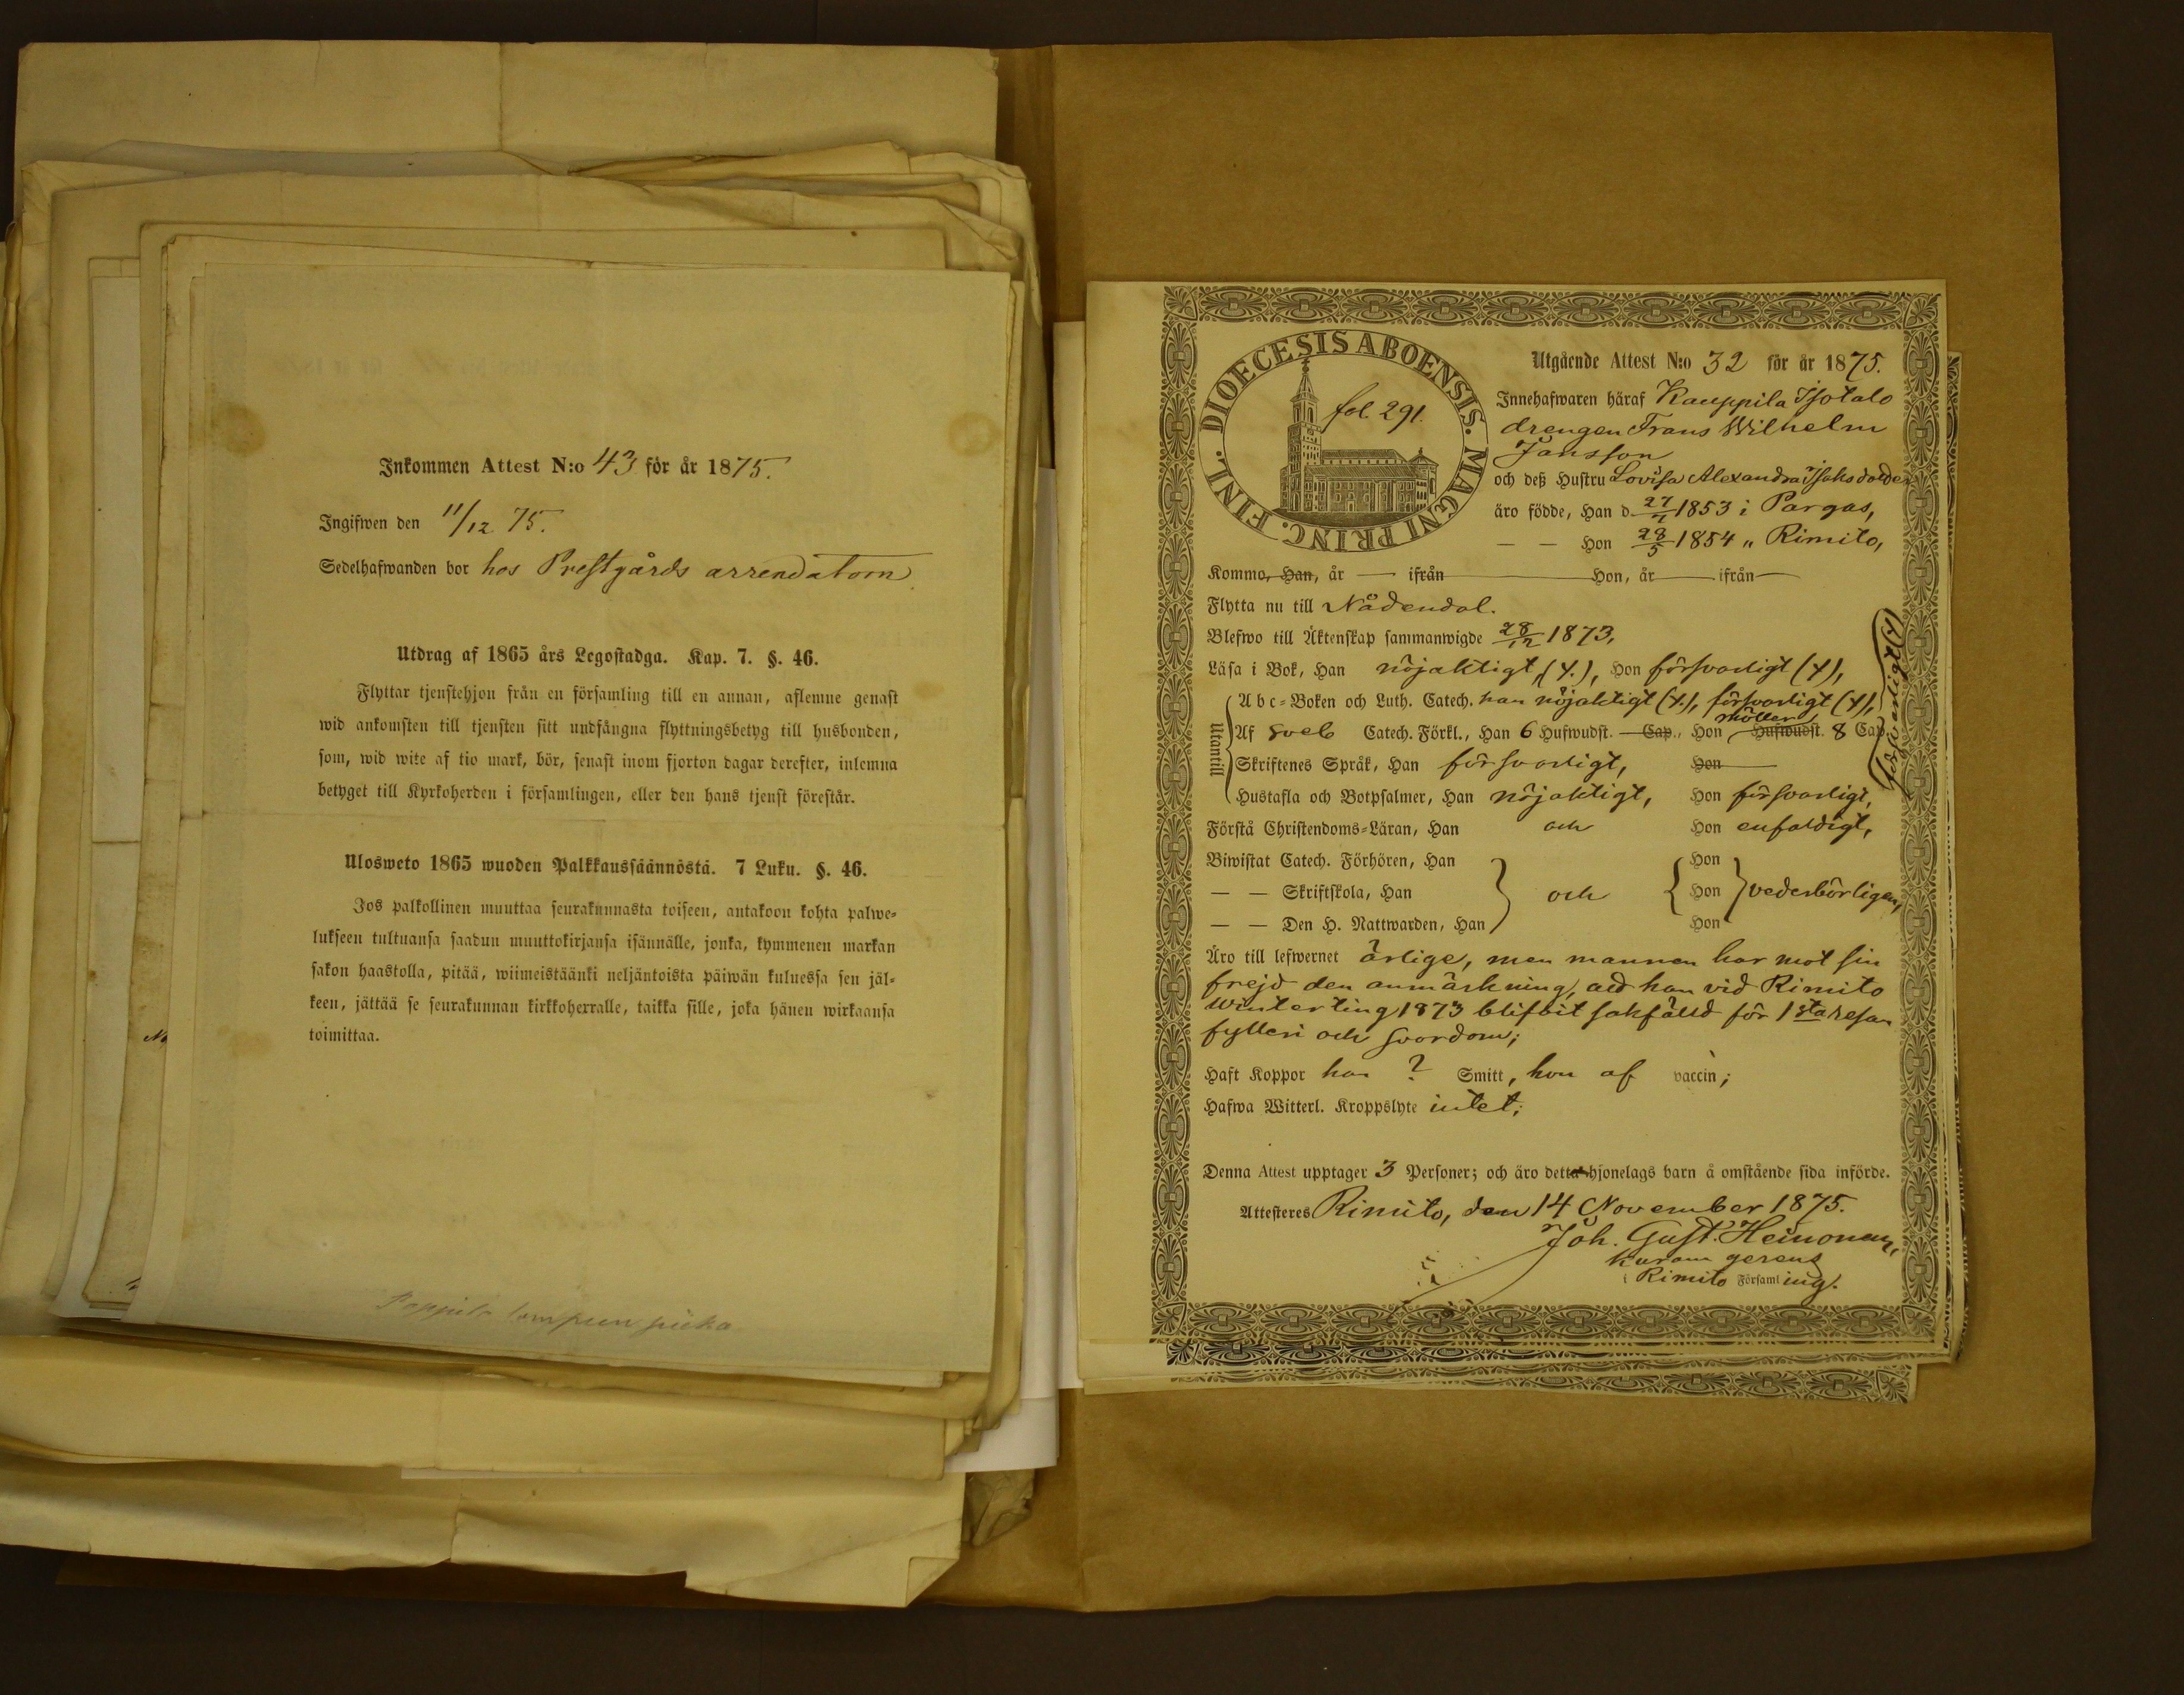 Inkommen Attest N:o 43 för år 1875.
Ingifwen den 11/12 75.
Sedelhafwanden bor hos Prestgårds arrendatorn
Utdrag af 1865 års Legostadga. Kap. 7. §. 46.
Flyttar tjenstehjon från en församling till en annan, aflemne genast
wid ankomsten till tjensten sitt undfångna flyttningsbetyg till husbonden,
som, wid wite af tio mark, bör, senast inom fjorton dagar derefter, inlemna
betyget till Kyrkoherden i församlingen, eller den hans tjenst förestår.
Ulosweto 1865 wuoden Palkkaussäännöstä. 7 Luku. §. 46.
Jos palkollinen muuttaa seurakunnasta toiseen, antakoon kohta palwe=
lukseen tultuansa saadun muuttokirjansa isännälle, jonka, kymmenen markan
sakon haastolla, pitää, wiimeistäänki neljäntoista päiwän kuluessa sen jäl=
keen, jättää se seurakunnan kirkkoherralle, taikka sille, joka hänen wirkaansa
toimittaa.
DIOECESIS ABOENSIS. MAGNI PRINC. FINL.
fol. 291.
Utgående Attest N:o 32 för år 1875.
Innehafwaren häraf Kauppila Isotalo
drengen Frans Wilhelm
Jansson
och deß Hustru Lovisa Alexandra Isaksdotter
äro födde, Han d. 27/7 1853 i Pargas,
— — Hon 28/5 1854 „ Rimito,
Kommo, Han, år — ifrån — Hon, år — ifrån —
Flytta nu till Nådendal.
Blefwo till Äktenskap sammanwigde 28/12 1873,
Läsa i Bok, Han nöjaktigt, (4.), Hon försvarligt (4),
Utantill
Abc=Boken och Luth. Catech. han nöjaktigt (4.), försvarligt (4),
Möller
Af Sveb Catech. Förkl., Han 6 Hufwudst. — Cap., Hon Hufwudst. 8 Cap.
försvarligt (4)
Skriftenes Språk, Han försvarligt, Hon
Hustafla och Botpsalmer, Han nöjaktigt, Hon försvarligt,
Förstå Christendoms=Läran, Han och Hon enfaldigt,
Biwistat Catech. Förhören, Han Hon
— — Skriftskola, Han och Hon vederbörligen,
— — Den H. Nattwarden, Han Hon
Äro till lefwernet ärlige, men mannen har mot sin
frejd den anmärkning, att han vid Rimito
Winterting 1873 blifvit sakfälld för 1sta resan
fylleri och svordom;
Haft Koppor han ? Smitt, hon af vaccin;
Hafwa Witterl. Kroppslyte intet;
Denna Attest upptager 3 Personer; och äro detta hjonelags barn å omstående sida införde.
Attesteres Rimito, den 14 November 1875.
Joh. Gust. Heinonen,
kuram gerens
i Rimito Församling.